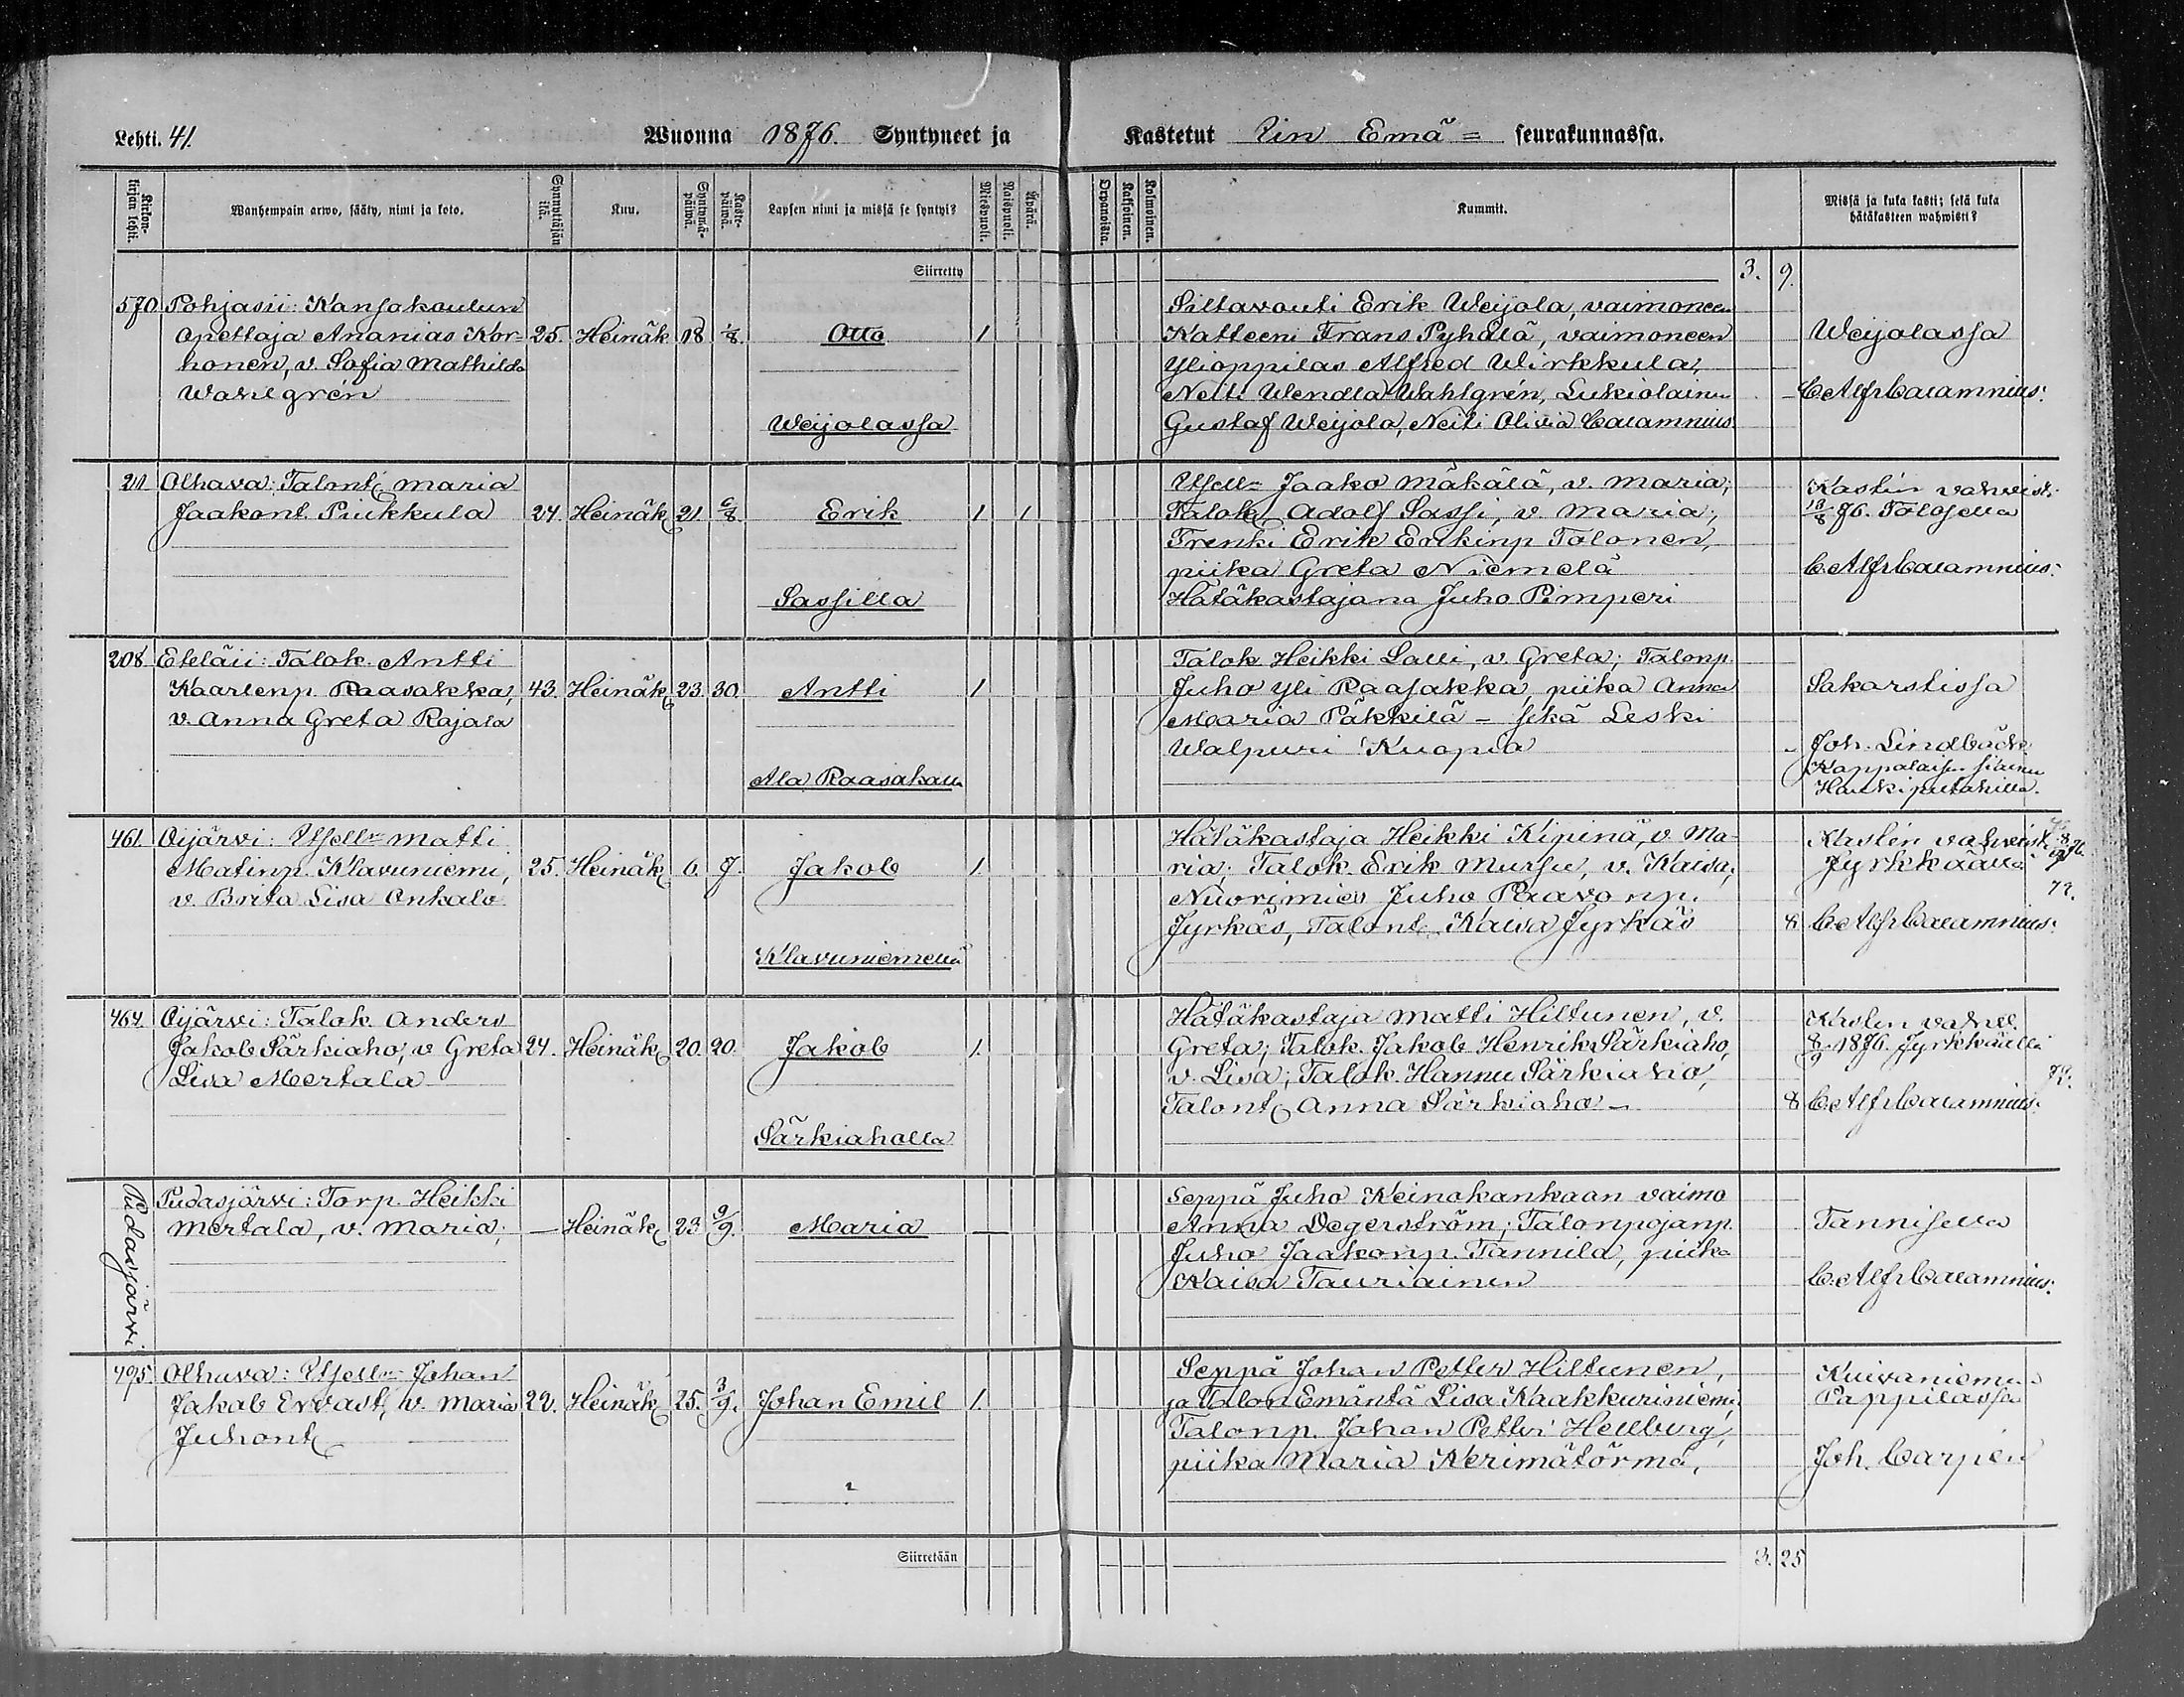 Lehti. 41.
Wuonna 1876. Syntyneet ja
Kastetut Iin Emä= seurakunnassa.
Kirkon-kirjan lehti.
Wanhempain arwo, sääty, nimi ja koto.
Synnyttäjän ikä.
Kuu.
Syntymä-päiwä.
Kaste-päiwä.
Lapsen nimi ja missä se syntyi?
Miespuoli.
Naispuoli.
Äpärä.
Orpanoista.
Kaksoinen.
Kolmoinen.
Kummit.
Missä ja kuka kasti; sekä kuka
hätäkasteen wahwisti?
Siirretty
3. 9.
570 Pohjasii: Kansakoulun
opettaja Ananias Kor-
honen, v. Sofia Mathilda
Wahlgrén
25. Heinäk 18 1/8. Otto 1
Weijolassa
Siltavouti Erik Weijola, vaimoneen
Katteeni Frans Pyhälä, vaimoneen
Ylioppilas Alfred Wirkkula,
Neiti Wendla Wahlgrén, Lukiolainen
Gustaf Weijola, Neiti Olivia Calamnius
Weijolassa
C. Alfr. Calamnius.
211 Olhava: Talont. Maria
Jaakont. Puikkula
24. Heinäk 21 6/8. Erik 1 1
Sassilla
Itsell= Jaako Mäkälä, v. Maria,
Talok. Adolf Sassi, v. Maria,
Trenki Erik Erikinp Talonen,
piika Greta Niemelä
Hätäkastajana Juho Pimperi
Kastin vahvist.
13/8 76.
C. Alfr. Calamnius.
208 Eteläii: Talok. Antti
Kaarlenp. Raasakka,
v. Anna Greta Rajala
43. Heinäk 23. 30. Antti 1
Ala Raasakalla
Talok Heikki Lalli, v. Greta; Talonp
Juho Yli Raasakka, piika Anna
Maria Päkkilä – sekä Leski
Walpuri Kuopia
Sakarstissa
Joh. Lindbäck
Kappalaisen
Haukiputahilla.
461. Oijärvi: Itsell= Matti
Matinp. Klavuniemi,
v. Brita Lisa Onkalo
25. Heinäk 6. 7. Jakob 1.
Klavuniemellä
Hätäkastaja Heikki Kipinä, v. Ma-
ria; Talok. Erik Mursu, v. Kaisa,
Nuorimies Juho Paavonp.
Jyrkäs, Talont. Kaisa Jyrkäs
Kastin vahvist.
Jyrkkäällä
8 C. Alfr. Calamnius.
464. Oijärvi: Talok. Anders
Jakob Särkiaho, v Greta
Lisa Mertala
24. Heinäk 20. 20. Jakob 1.
Särkiaholla
Hätäkastaja Matti Hiltunen, v.
Greta; Talok. Jakob Henrik Särkiaho,
v. Lisa; Talok. Hannu Särkiaho,
Talont. Anna Särkiaho –
Kasten vahv.
8/9 1876. Jyrkkäällä
8 C. Alfr. Calamnius.
Pudasjärvi
Pudasjärvi: Torp. Heikki
Mertala, v. Maria,
— Heinäk 23 9/9. Maria —
Seppä Juho Keinokankaan vaimo
Anna Degerström; Talonpojanp.
Juho Jaakonp. Tannila, piika
Kaisa Tauriainen
C. Alfr. Calamnius.
495 Olhava: Itsell= Johan
Jakob Ervast, v. Maria
Juhont
22. Heinäk 25. 3/9. Johan Emil 1.
Seppä Johan Petter Hiltunen,
ja Talon Emäntä Lisa Kaakkuriniemi
Talonp. Johan Petter Hellberg,
piika Maria Kerimätörmä,
Kuivaniemen
Pappilassa
Joh. Carpén
Siirretään
3. 25